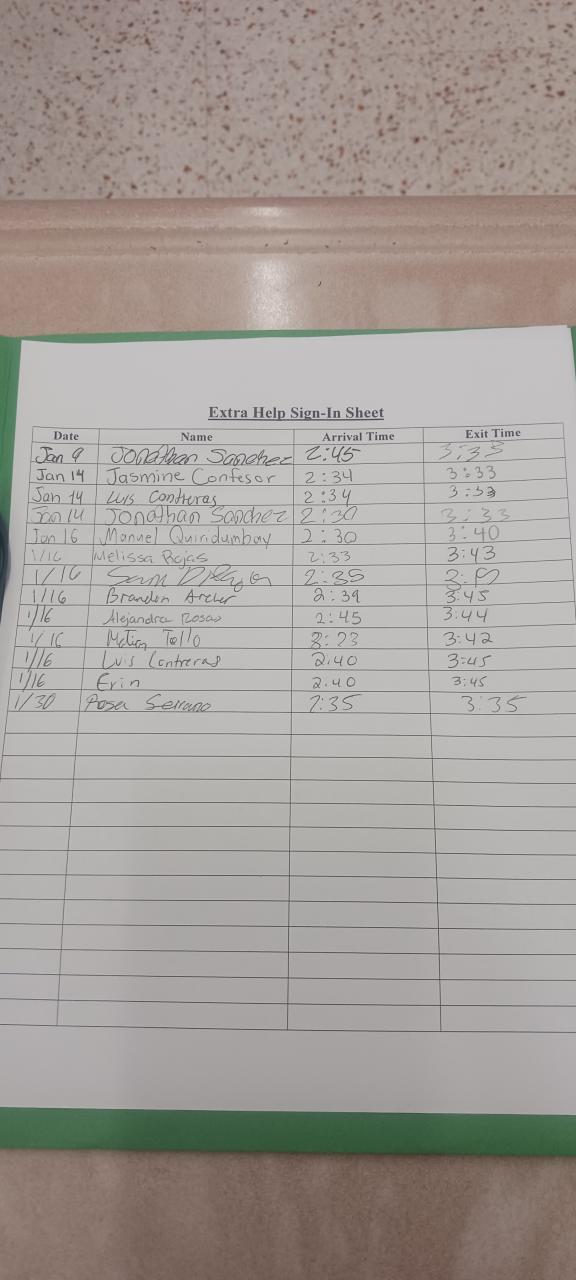 Extra Help Sign-In Sheet
Date Name Arrival Time Exit Time
Jan 9 Jonathan Sanchez 2:45 3:35
Jan 14 Jasmine Confesor 2:34 3:33
Jan 14 Luis Contreras 2:34 3:33
Jan 14 Jonathan Sanchez 2:30 3:33
Jan 16 Manuel Quiridumbay 2:30 3:40
1/16 Melissa Rojas 2:33 3:43
1/16 Sam 2:35
1/16 Brandon Archer 2:39 3:45
1/16 Alejandra Rosas 2:45 3:44
1/16 Tello 3:42
1/16 Luis Contreras 2:40 3:45
1/16 Erin 2:40 3:45
1/30 Serrano 2:35 3:35